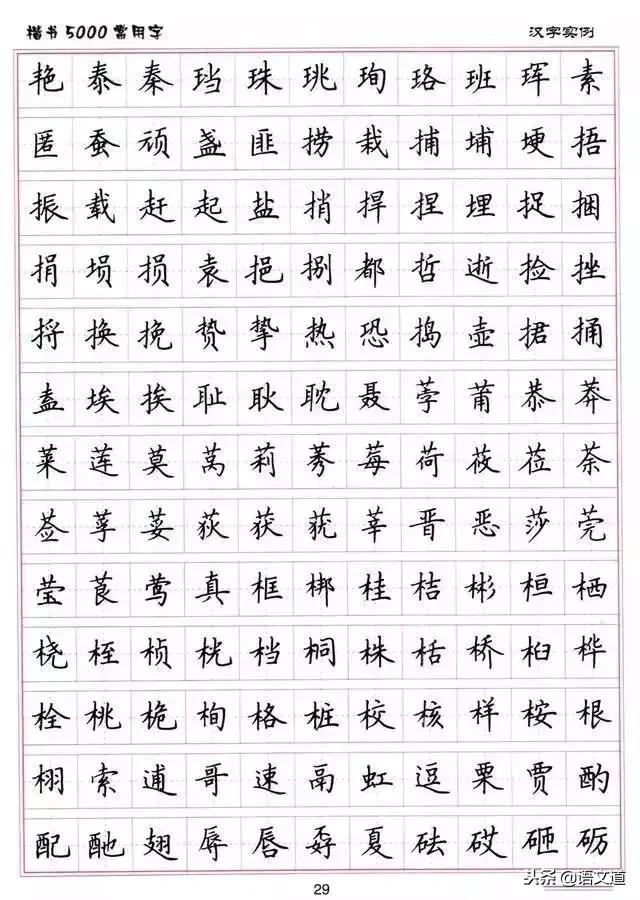 楷书5000常用字 汉字实例
艳泰秦珰珠珧珣珞班珲素
匿蚕顽盏匪捞栽捕埔埂捂
振载赶起盐捎捍捏埋捉捆
捐埙损袁挹捌都哲逝捡挫
捋换挽贽挚热恐捣壶捃捅
盍埃挨耻耿耽聂荸莆恭莽
莱莲莫莴莉莠莓荷莜莅荼
莶莩荽荻获莸莘晋恶莎莞
莹莨莺真框梆桂桔彬桓栖
桡桎桢桄档桐株栝桥桕桦
栓桃桅栒格桩校核样桉根
栩索逋哥速鬲虹逗栗贾酌
配酏翅辱唇孬夏砝砹砸砺
29
头条@语文道